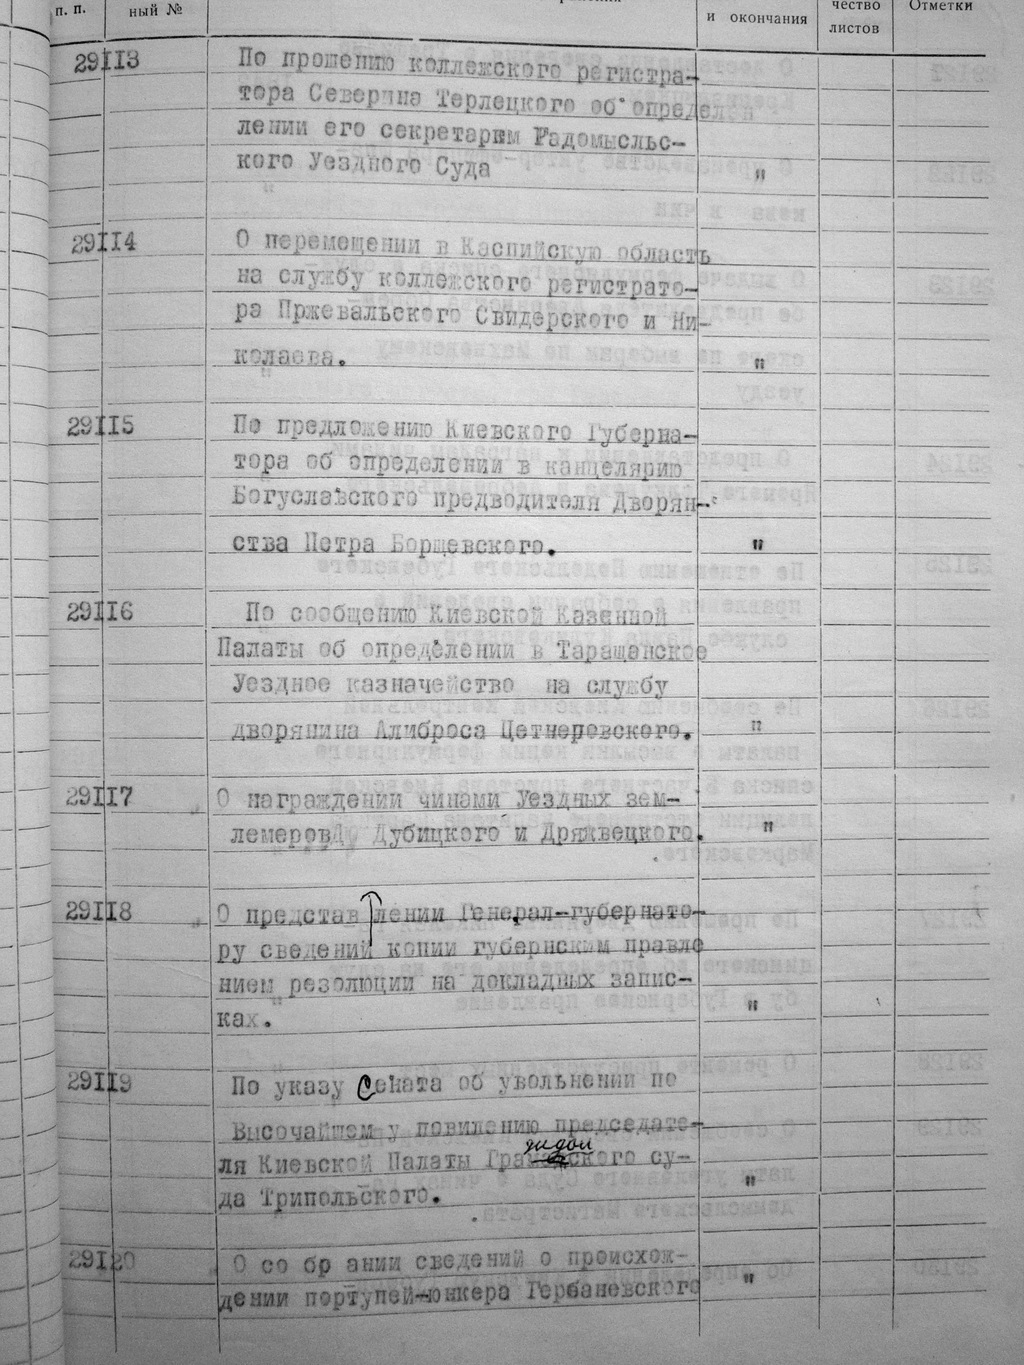 п. п.
ный №
и окончания
чество
листов
Отметки
29113
По прошению коллежского регистра-
тора Северина Терлецкого об определ
лении его секретарем Радомысльс-
кого Уездного Суда "
29114
О перемещении в Каспийскую область
на службу коллежского регистрато-
ра Пржевальского Свидерского и Ни-
колаева. "
29115
По предложению Киевского Губерна-
тора об определении в канцелярию
Богуславского предводителя Дворян-
ства Петра Борщевского. "
29116
По сообщению Киевской Казенной
Палаты об определении в Таращанское
Уездное казначейство на службу
дворянина Алиброса Цетнеровского. "
29117
О награждении чинами Уездных зем-
лемеров Дубицкого и Дряжвецкого. "
29118
О представлении Генерал-губернато-
ру сведений копии губернским правле
нием резолюции на докладных запис-
ках. "
29119
По указу Сената об увольнении по
Высочайшем у повилению председате-
ля Киевской Палаты Гражданского су-
да Трипольского. "
29120
О со бр ании сведений о происхож-
дении портупей-юнкера Гербаневского "